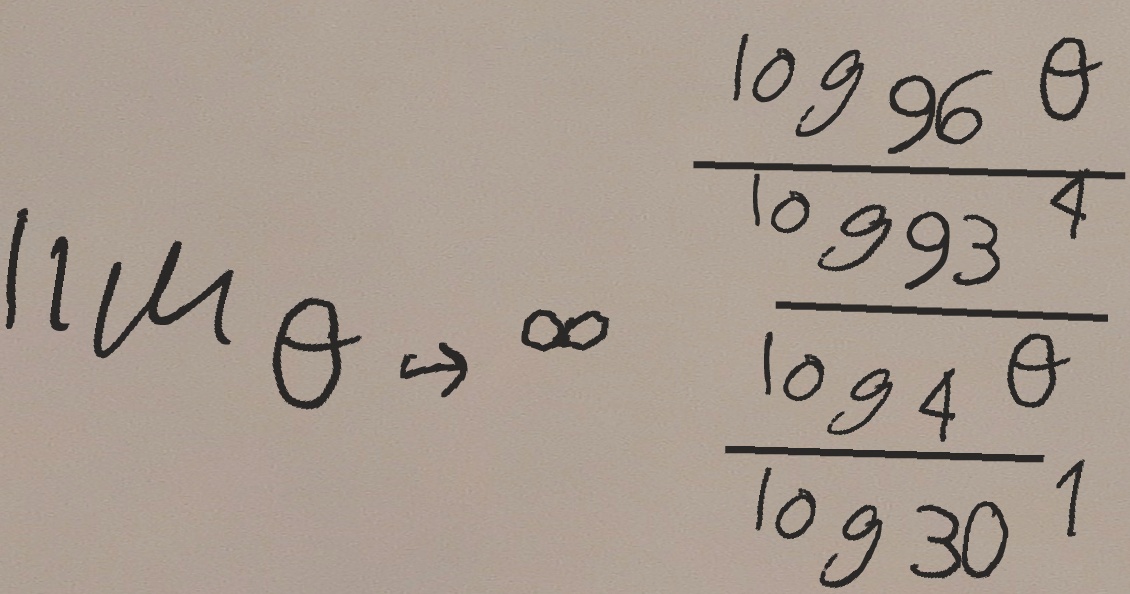 lim θ → ∞ log 96 θ
log 93 4
log 4 θ
log 30 1